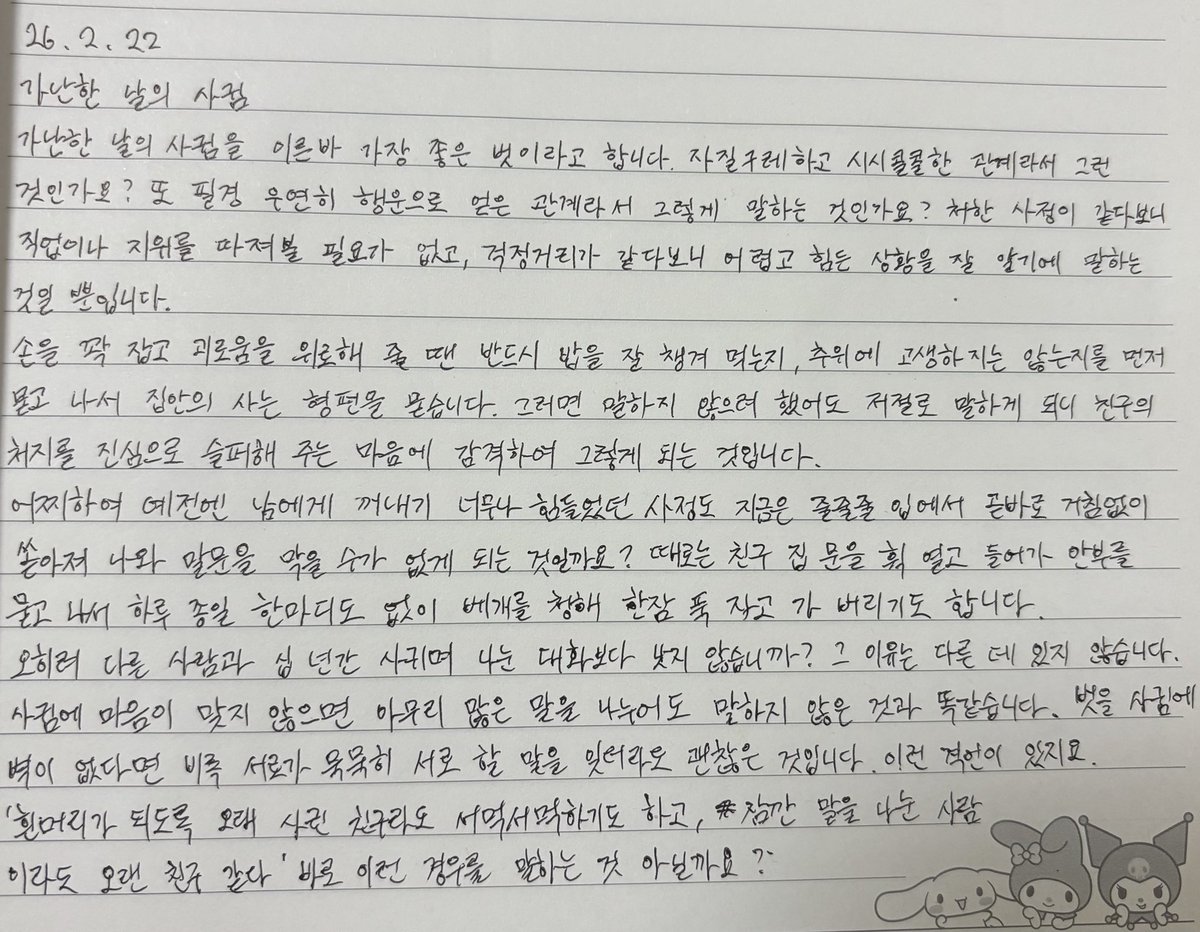 26. 2. 22
가난한 날의 사귐
가난한 날의 사귐을 이른바 가장 좋은 벗이라고 합니다. 자질구레하고 시시콜콜한 관계라서 그런
것인가요? 또 필경 우연히 행운으로 얻은 관계라서 그렇게 말하는 것인가요? 처한 사정이 같다보니
직업이나 지위를 따져볼 필요가 없고, 걱정거리가 같다보니 어렵고 힘든 상황을 잘 알기에 말하는
것일 뿐입니다.
손을 꽉 잡고 괴로움을 위로해 줄 땐 반드시 밥을 잘 챙겨 먹는지, 추위에 고생하지는 않는지를 먼저
묻고 나서 집안의 사는 형편을 묻습니다. 그러면 말하지 않으려 했어도 저절로 말하게 되니 친구의
처지를 진심으로 슬퍼해 주는 마음에 감격하여 그렇게 되는 것입니다.
어찌하여 예전엔 남에게 꺼내기 너무나 힘들었던 사정도 지금은 줄줄줄 입에서 곧바로 거침없이
쏟아져 나와 말문을 막을 수가 없게 되는 것일까요? 때로는 친구 집 문을 휙 열고 들어가 안부를
묻고 나서 하루 종일 한마디도 없이 베개를 청해 한잠 푹 자고 가 버리기도 합니다.
오히려 다른 사람과 십 년간 사귀며 나눈 대화보다 낫지 않습니까? 그 이유는 다른 데 있지 않습니다.
사귐에 마음이 맞지 않으면 아무리 많은 말을 나누어도 말하지 않은 것과 똑같습니다. 벗을 사귐에
벽이 없다면 비록 서로가 묵묵히 서로 할 말을 잊더라도 괜찮은 것입니다. 이런 격언이 있지요.
'흰머리가 되도록 오래 사귄 친구라도 서먹서먹하기도 하고, 잠깐 말을 나눈 사람
이라도 오랜 친구 같다' 바로 이런 경우를 말하는 것 아닐까요?